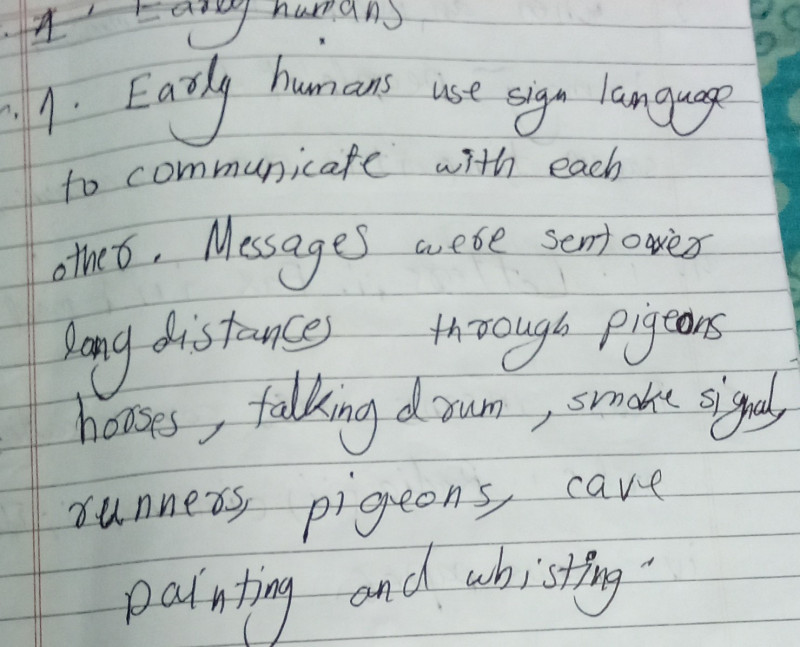 1. Early humans
1. Early humans use sign language
to communicate with each
other. Messages were sent over
long distances through pigeons
horses, talking drum, smoke signal,
runners, pigeons, cave
painting and whisting.